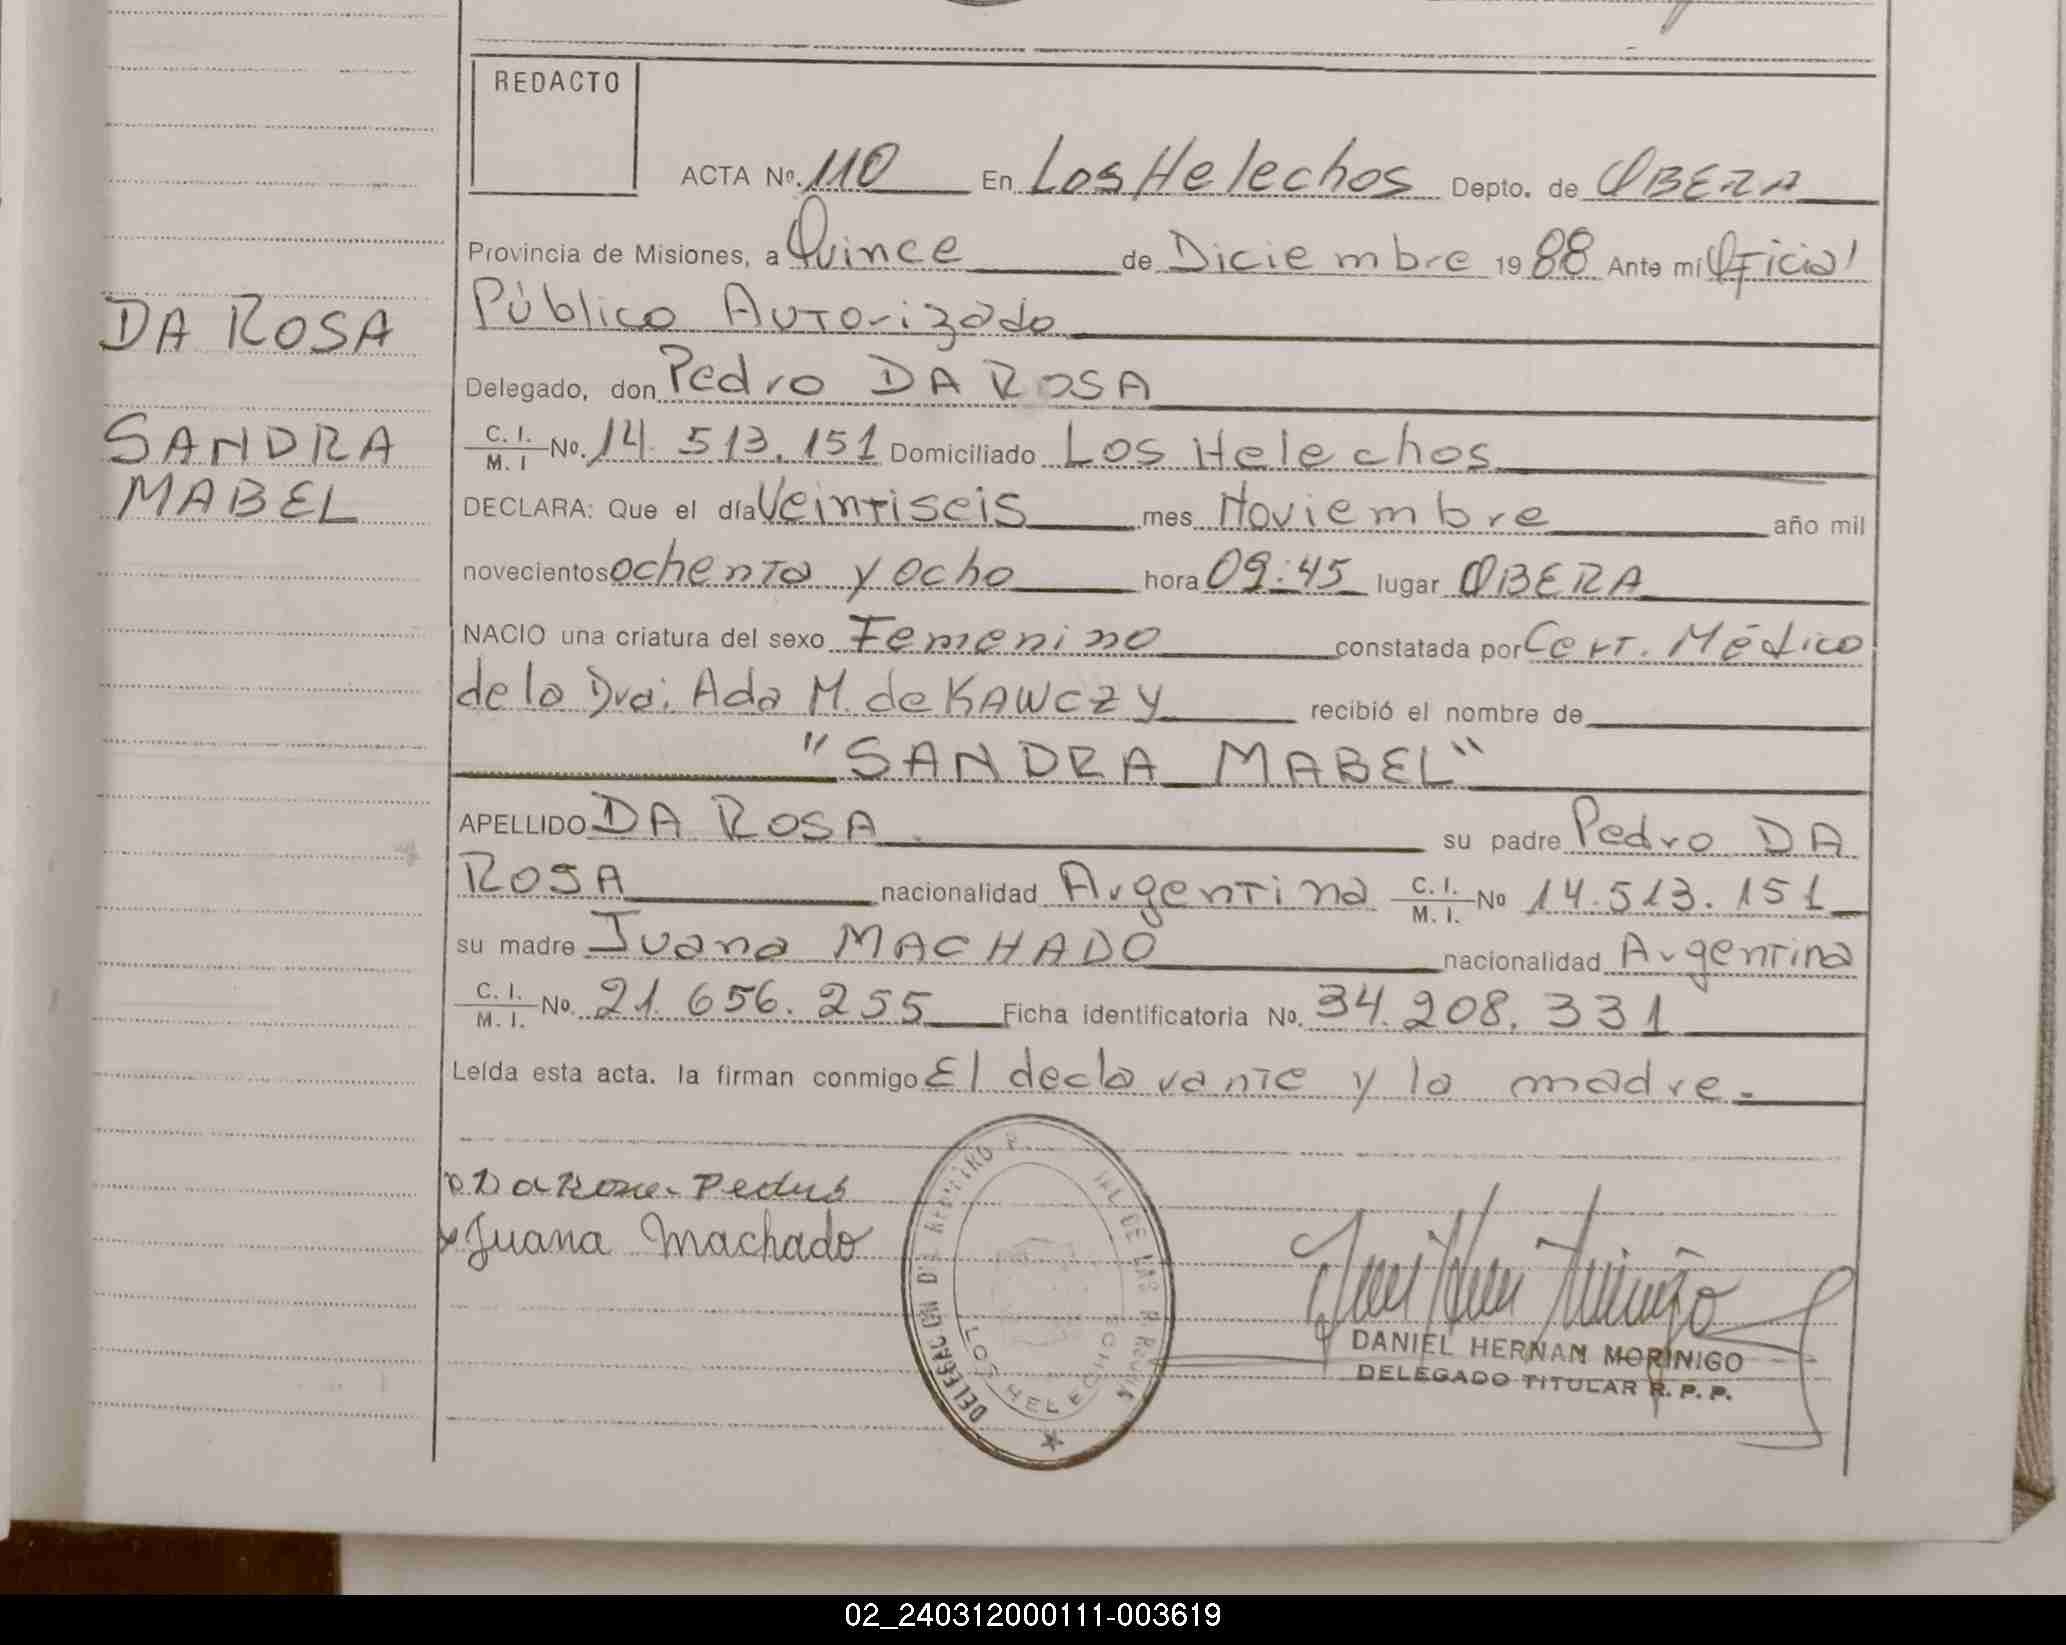 REDACTO
ACTA Nº. 110 En Los Helechos Depto. de OBERA
Provincia de Misiones, a Quince de Diciembre 1988 Ante mí Oficial
Público Autorizado
DA ROSA
Delegado, don Pedro DA ROSA
SANDRA
C. I. M. I No. 14.513.151 Domiciliado Los Helechos
MABEL
DECLARA: Que el día Veintiseis mes Noviembre año mil
novecientos ochenta y ocho hora 09:45 lugar OBERA
NACIO una criatura del sexo Femenino constatada por Cert. Médico
de la Dra. Ada M. de KAWCZY recibió el nombre de
"SANDRA MABEL"
APELLIDO DA ROSA su padre Pedro DA
ROSA nacionalidad Argentina C. I. M. I. Nº 14.513.151
su madre Juana MACHADO nacionalidad Argentina
C. I. M. I. No. 21.656.255 Ficha identificatoria No. 34.208.331
Leída esta acta. la firman conmigo El declarante y la madre.
Juana Machado
LOS HELECHOS
DANIEL HERNAN MORINIGO
DELEGADO TITULAR R. P. P.
02_240312000111-003619